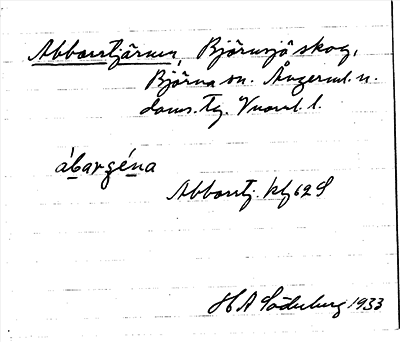 Abborrtjärnen, Björnsjö skog,
Björna sn. Ångerml. n.
doms. Tg. Vnorrl. l.
ábargéna
Abborrtj. kbl 62 S
H A Söderberg 1933